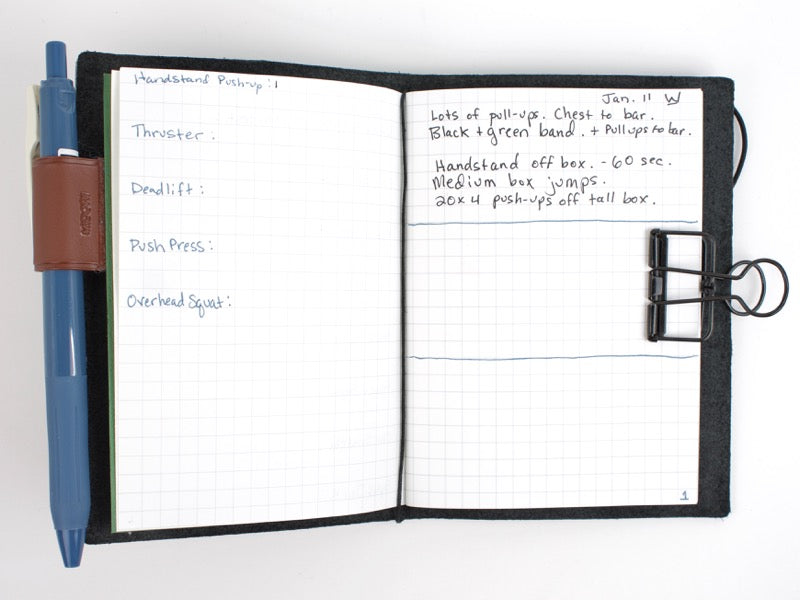 Handstand Push-up: 1
Thruster:
Deadlift:
Push Press:
Overhead Squat:
Jan. 11 W
Lots of pull-ups. Chest to bar.
Black + green band. + Pullups to bar.
Handstand off box. - 60 sec.
Medium box jumps.
20x4 push-ups off tall box.
1
MIDORI